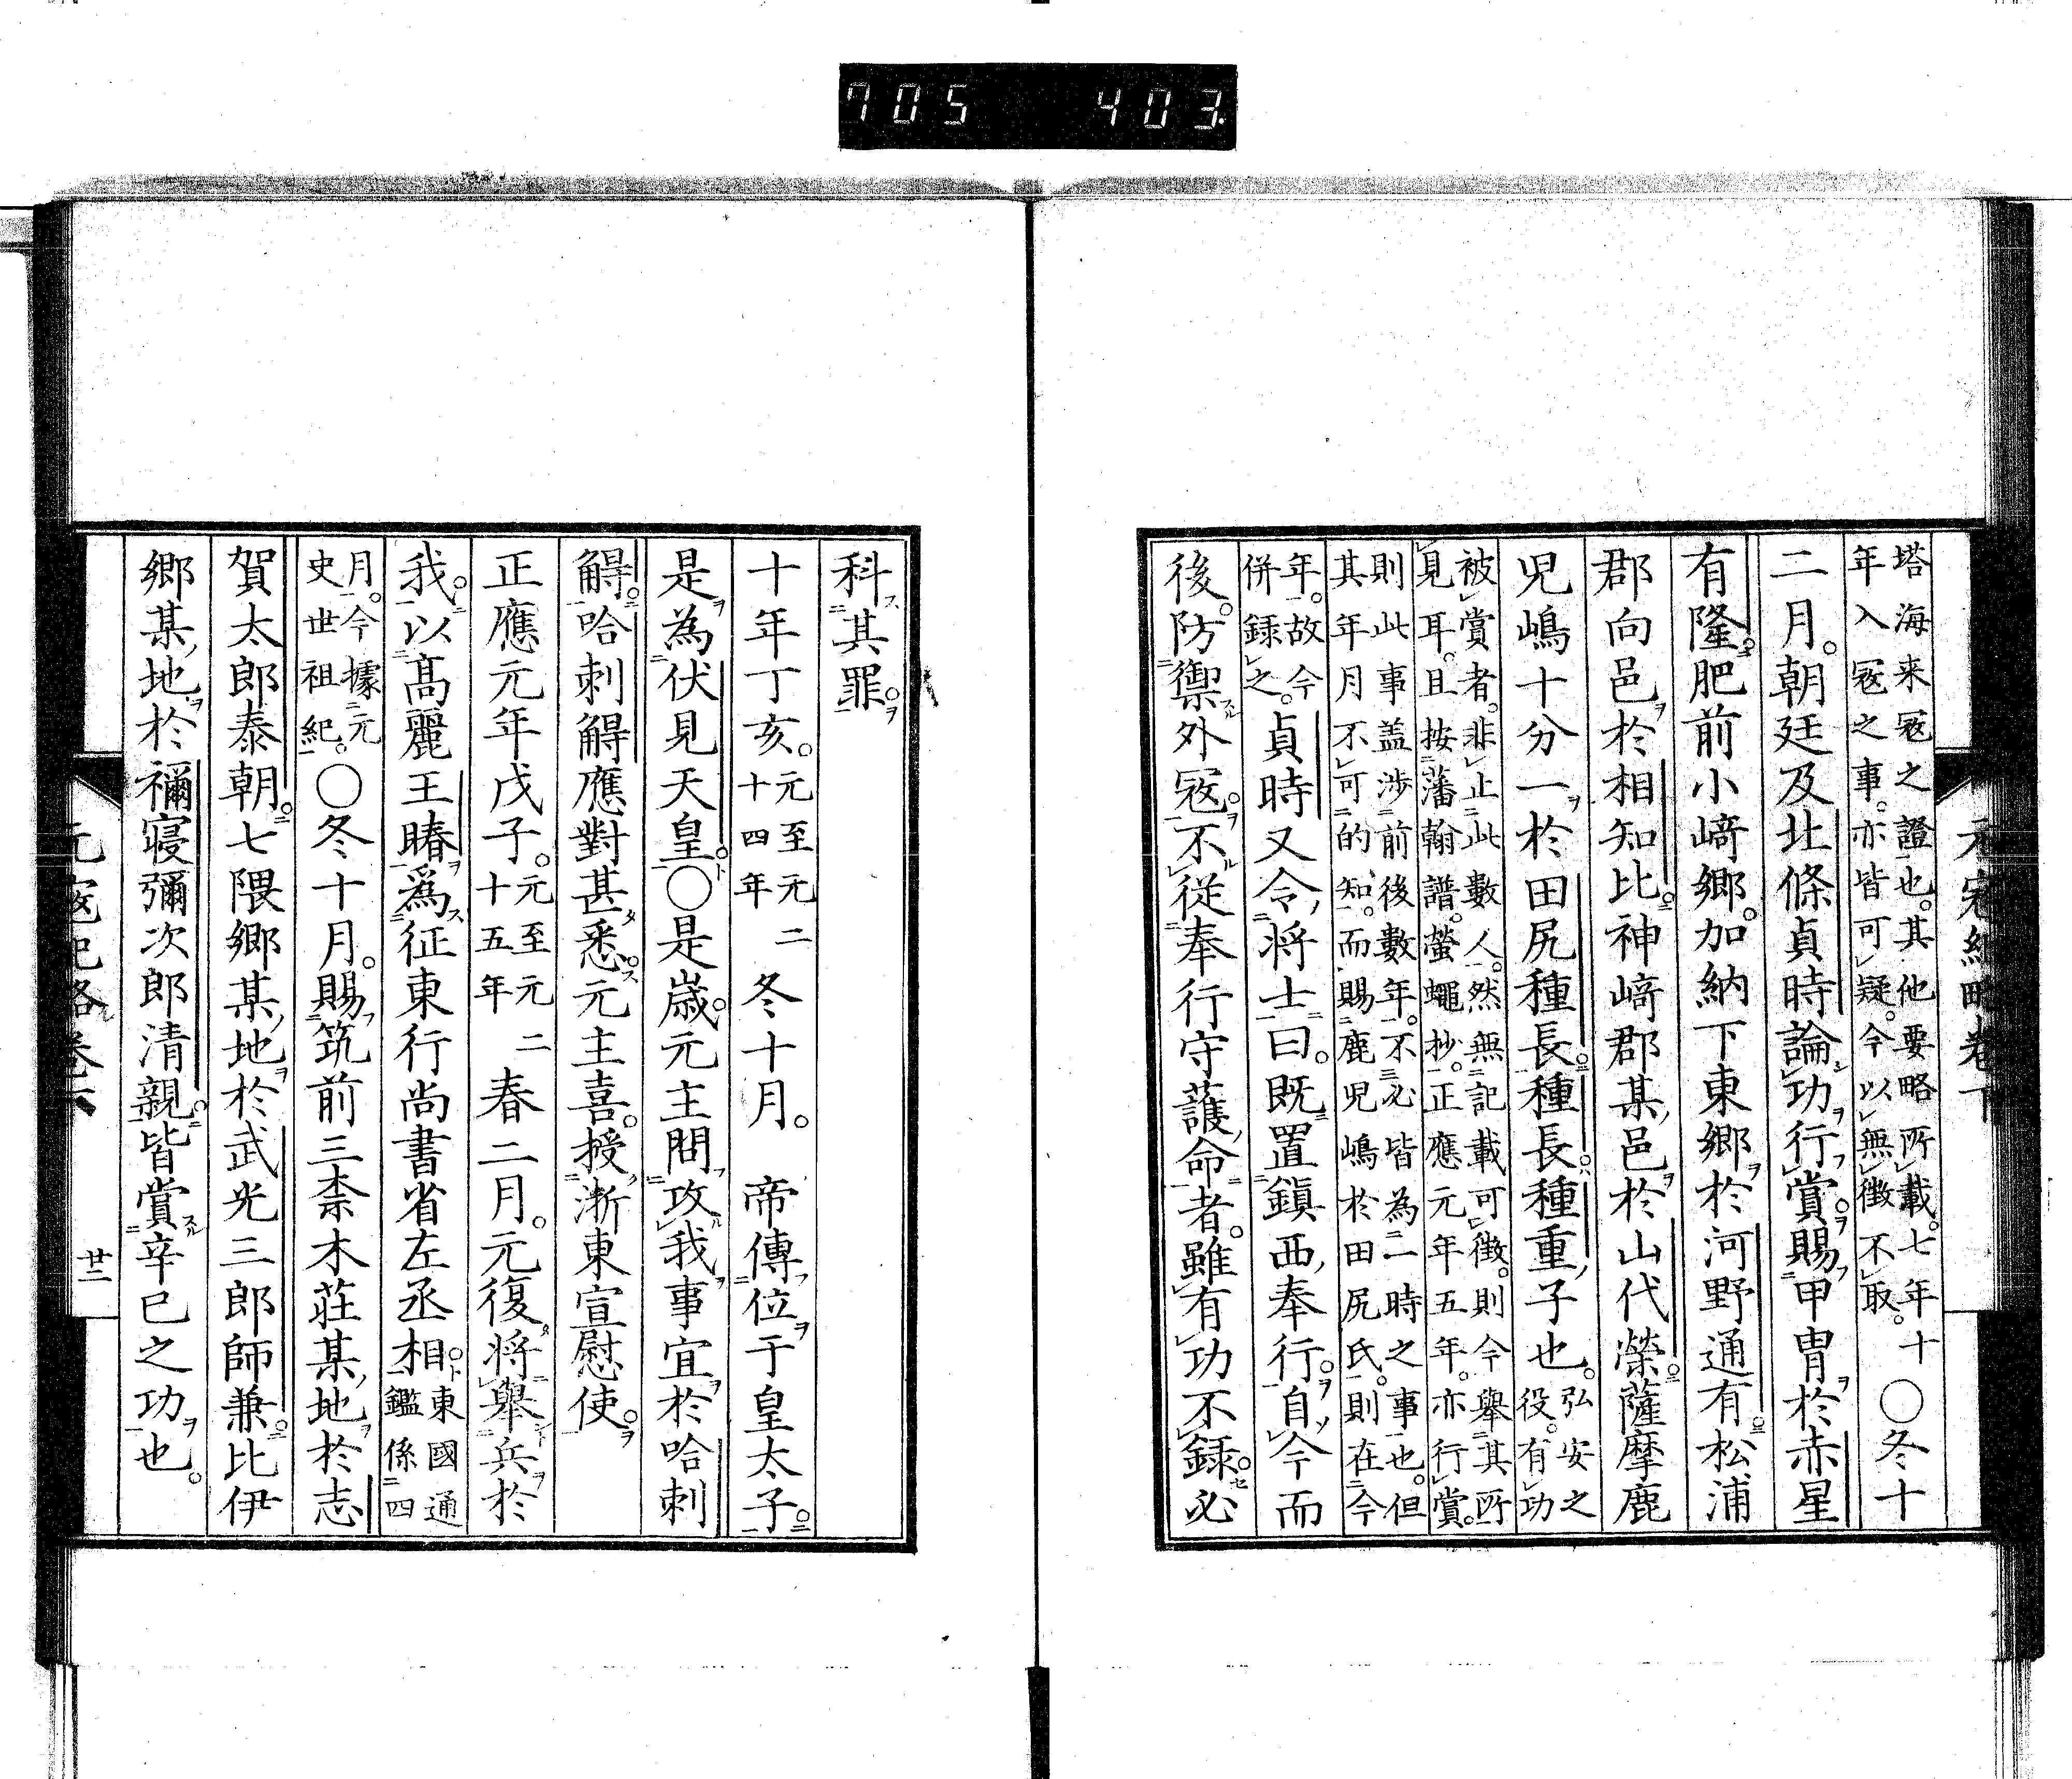 705 403.
塔海来寇之證也。其他要略所載。七年十
年入寇之事。亦皆可疑。今以無徴不取。○冬十
二月。朝廷及北條貞時論功行賞。賜甲冑於赤星
有隆。肥前小﨑郷。加納下東郷於河野通有。松浦
郡向邑於相知比。神﨑郡某邑於山代榮。薩摩鹿
児嶋十分一於田尻種長。種長。種重子也。弘安之
役。有功
被賞者。非止此數人。然無記載可徴。則今舉其所
見耳。且按藩翰譜。螢蠅抄。正應元年五年。亦行賞。
則此事盖渉前後數年。不必皆為一時之事也。但
其年月不可的知。而賜鹿児嶋於田尻氏。則在今
年。故今
併録之。貞時又令将士曰。既置鎮西奉行。自今而
後。防禦外寇。不從奉行守護命者。雖有功不録。必
科其罪。
十年丁亥。元至元二
十四年冬十月。帝傳位于皇太子。
是為伏見天皇。○是歳。元主問攻我事宜於哈刺
䚟。哈刺䚟應對甚悉。元主喜。授浙東宣慰使。
正應元年戊子。元至元二
十五年春二月。元復将舉兵於
我。以高麗王賰為征東行尚書省左丞相。東國通
鑑係四
月。今據元
史世祖紀。○冬十月。賜筑前三柰木莊某地於志
賀太郎泰朝。七隈郷某地於武光三郎師兼。比伊
郷某地於禰寝彌次郎清親。皆賞辛巳之功也。
元寇紀略卷下
廿二